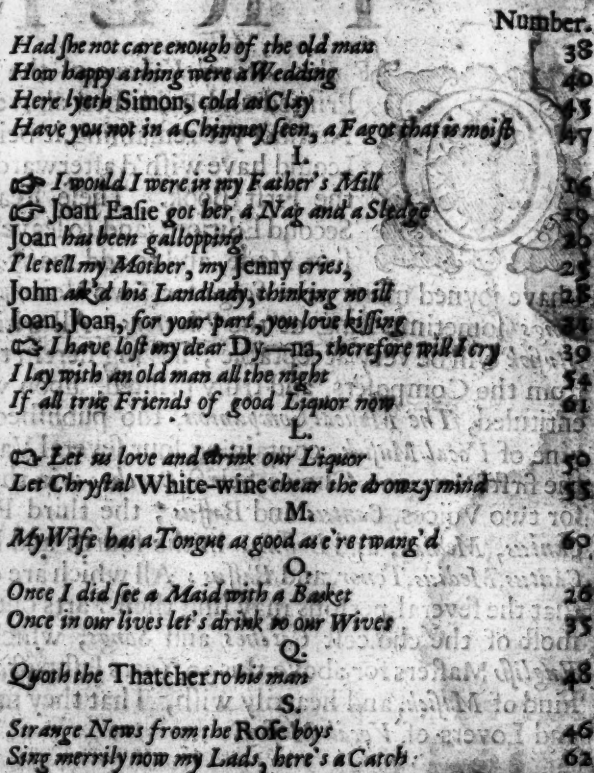 Number.
Had ſhe not care enough of the old man 38
How happy a thing were a Wedding 40
Here lyeth Simon, cold as Clay 45
Have you not in a Chimney ſeen, a Fagot that is moiſt 47
I.
☞ I would I were in my Father's Mill 16
☞ Joan Eaſie got her a Nag and a Sledge 19
Joan has been gallopping 20
I'le tell my Mother, my Jenny cries, 25
John ask'd his Landlady, thinking no ill 28
Joan, Joan, for your part, you love kiſſing 34
☞ I have loſt my dear Dy—na, therefore will I cry 39
I lay with an old man all the night 54
If all true Friends of good Liquor now 61
L.
☞ Let us love and drink our Liquor 50
Let Chryſtal White-wine chear the drowzy mind 55
M.
My Wife has a Tongue as good as e're twang'd 60
O.
Once I did ſee a Maid with a Basket 26
Once in our lives let's drink to our Wives 35
Q.
Quoth the Thatcher to his man 48
S.
Strange News from the Roſe boys 46
Sing merrily now my Lads, here's a Catch 62